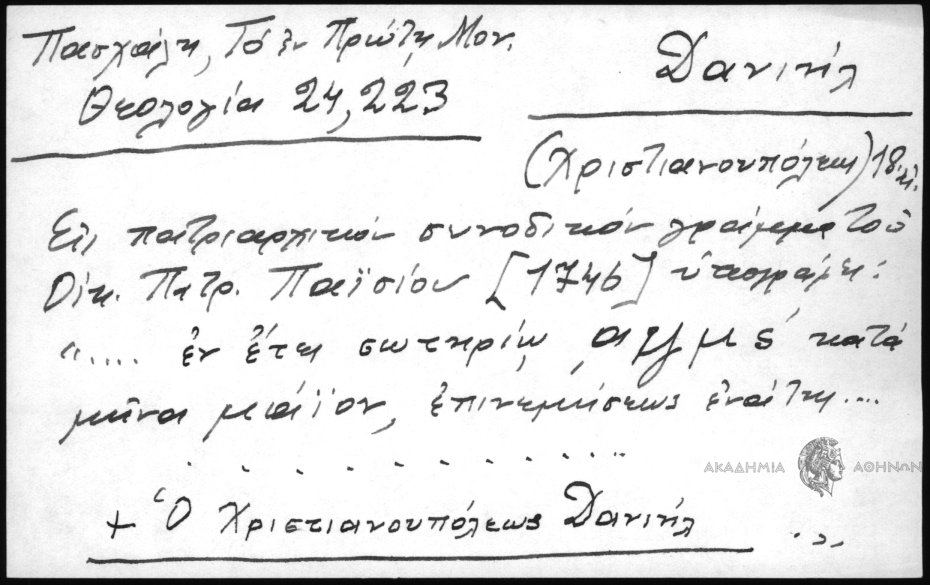 Πασχάλη, Τό ἐν Πρώτῃ Μον.
Θεολογία 24, 223
Δανιήλ
(Χριστιανουπόλεως) 18 αἰ.
Εἰς πατριαρχικόν συνοδικόν γράμμα τοῦ
Οἰκ. Πατρ. Παϊσίου [1746] ὑπογράφει:
"..... ἐν ἔτει σωτηρίῳ ͵αψμς΄ κατά
μῆνα μάϊον, ἐπινεμήσεως ἐνάτης....
. . . . . . . . . . . . . ."
ΑΚΑΔΗΜΙΑ ΑΘΗΝΩΝ
+ Ὁ Χριστιανουπόλεως Δανιήλ